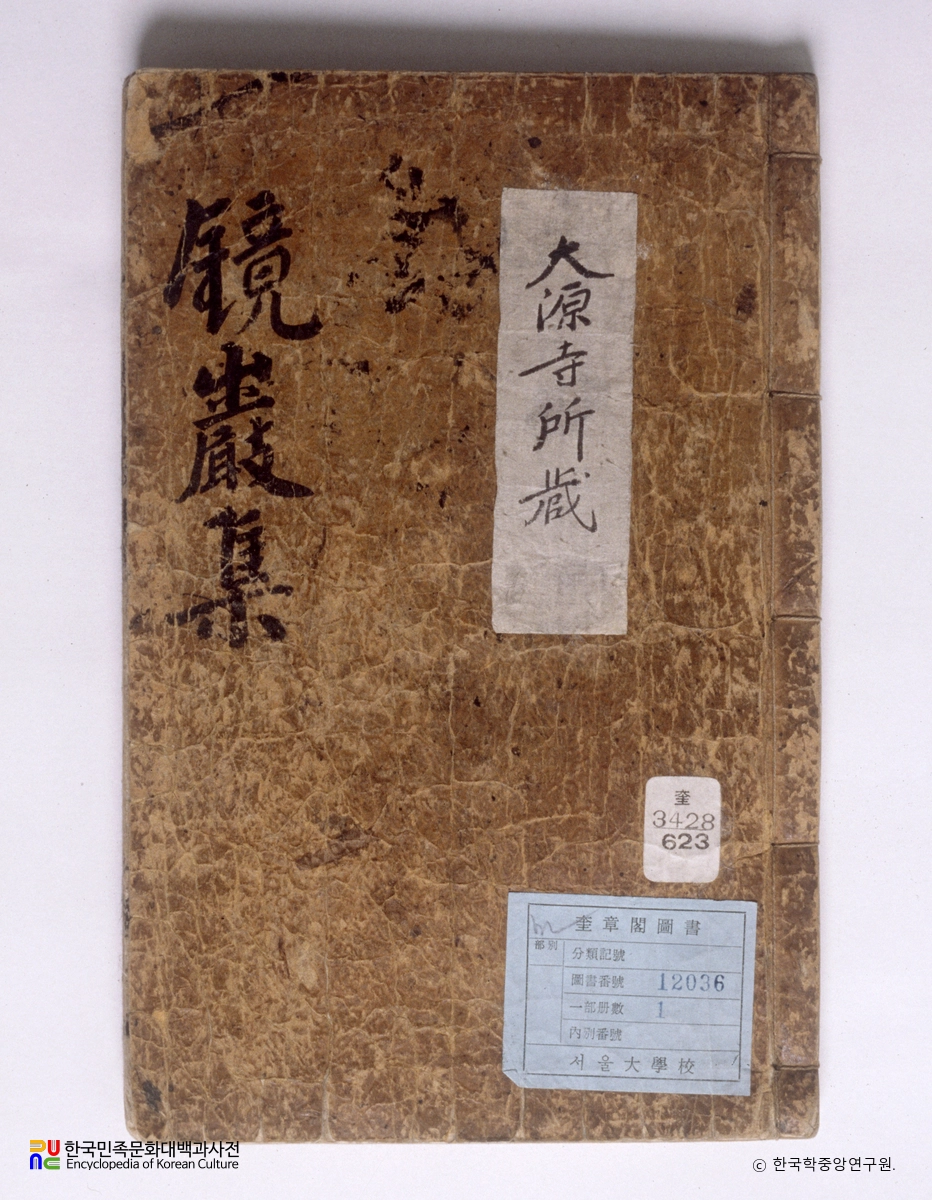 鏡巖集
大源寺所蔵
奎
3428
623
奎章閣圖書
部別
分類記號
圖書番號 12036
一部册數 1
內別番號
서울大學校
한국민족문화대백과사전
Encyclopedia of Korean Culture
© 한국학중앙연구원.